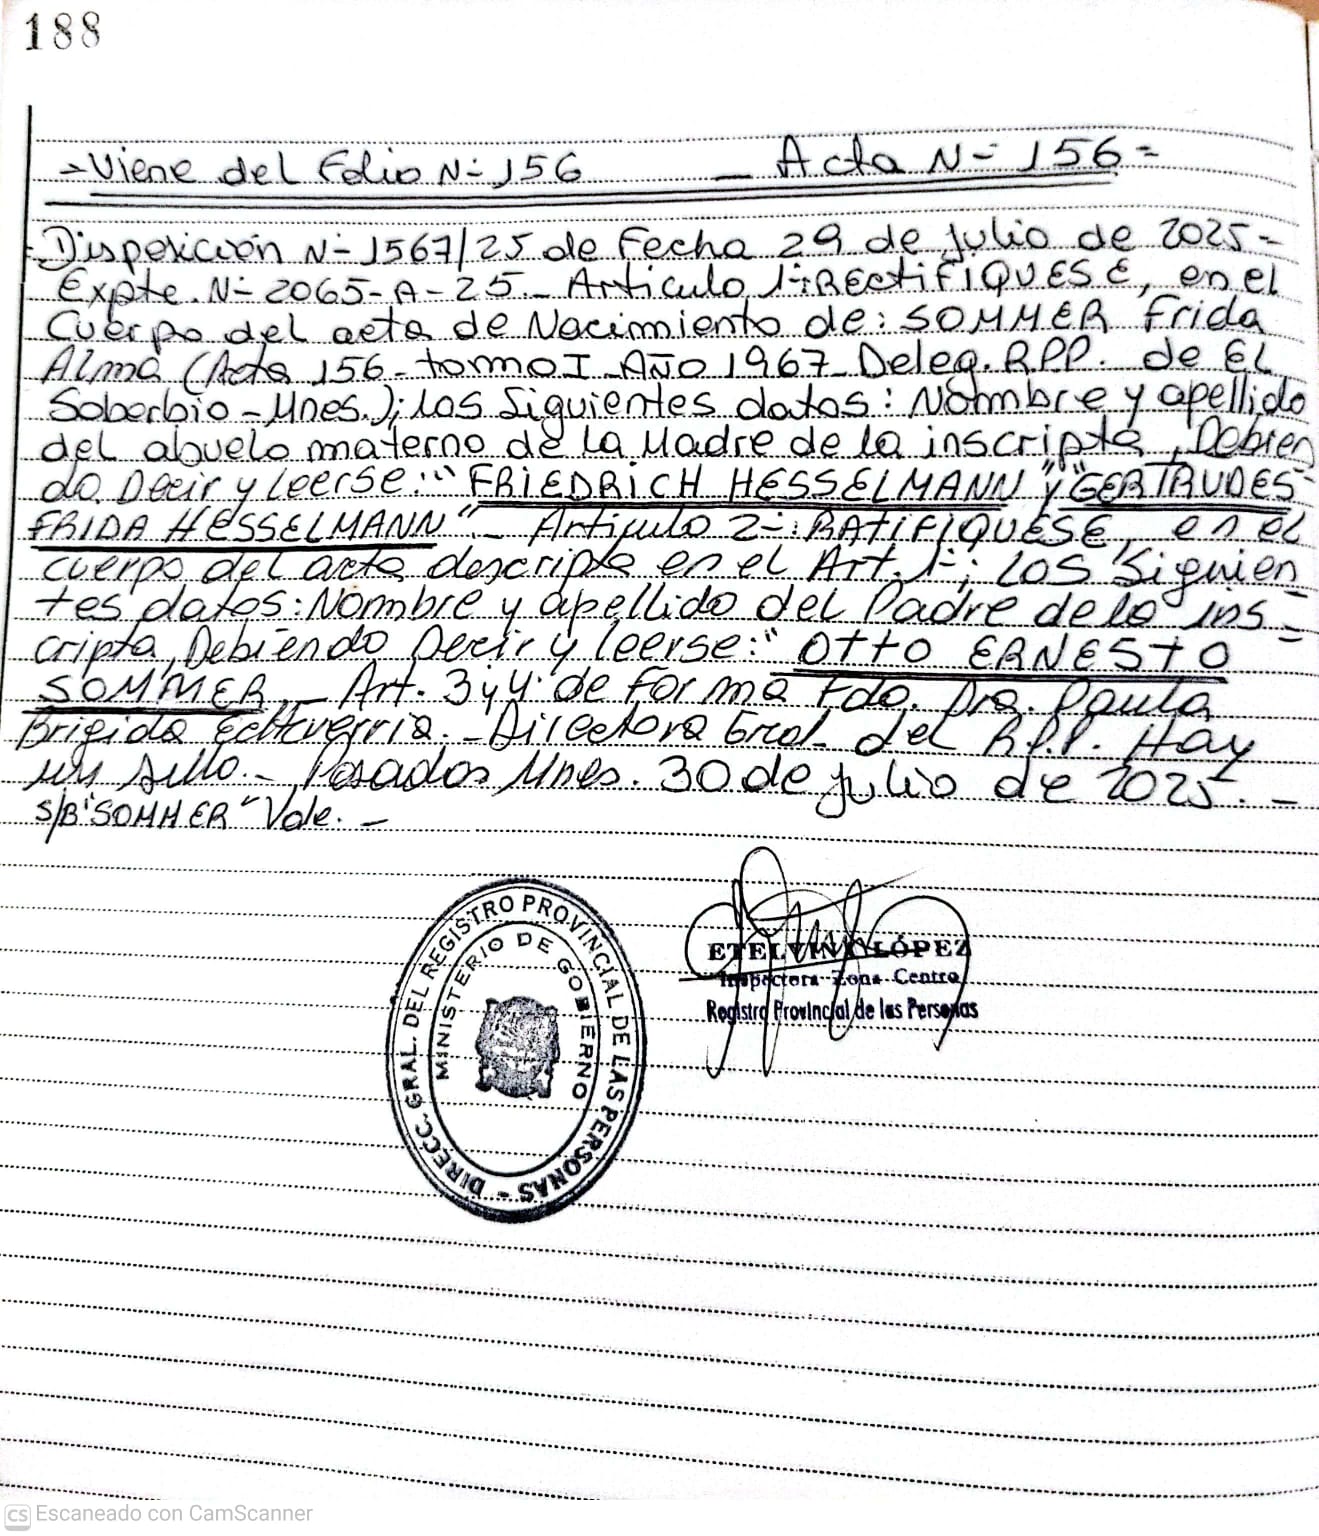 188
- Viene del Folio N= 156 _ Acta N= 156=
Disposición N= 1567/25 de Fecha 29 de julio de 2025-
Expte. N= 2065-A-25._ Articulo 1=: RECTIFIQUESE, en el
Cuerpo del acta de Nacimiento de: SOMMER Frida
Alma (Acta 156- tomo I Año 1967 Deleg. RPP. de El
Soberbio - Mnes.); los Siguientes datos: Nombre y apellido
del abuelo materno de la Madre de la inscripta, Debien
do Decir y leerse: "FRIEDRICH HESSELMANN" y "GERTRUDES
FRIDA HESSELMANN"._ Artículo 2=: RATIFIQUESE, en el
cuerpo del acta descripta en el Art. 1=; los Siguien
tes datos: Nombre y apellido del Padre de la ins-
cripta, Debiendo Decir y leerse: "OTTO ERNESTO
SOMMER._ Art. 3 y 4 de forma Fdo. Dra. Paula
Brigida Echeverria._ Directora Gral. del R.P.P. Hay
un sello._ Posadas Mnes. 30 de julio de 2025._
S/B "SOMMER" Vale._
DIRECC. GRAL. DEL REGISTRO PROVINCIAL DE LAS PERSONAS -
MINISTERIO DE GOBIERNO
ETELVINA LÓPEZ
Inspectora Zona Centro
Registro Provincial de las Personas
CS Escaneado con CamScanner